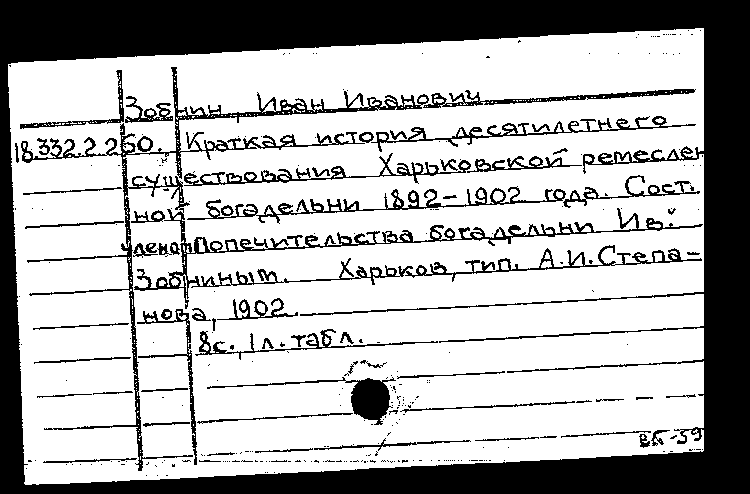 Зобнин, Иван Иванович
18.332.2.260. Краткая история десятилетнего
существования Харьковской ремеслен
ной богадельни 1892-1902 года. Сост.
членом Попечительства богадельни Ив.
Зобниным. Харьков, тип. А.И.Степа-
нова, 1902.
8с., 1л. табл.
ВБ-59